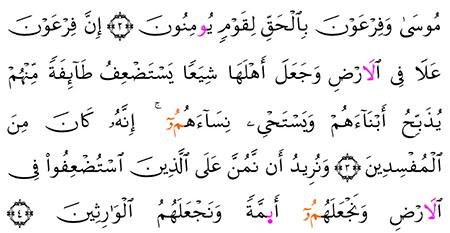 مُوسَىٰ وَفِرْعَوْنَ بِالْحَقِّ لِقَوْمٖ يُومِنُونَ ٢ إِنَّ فِرْعَوْنَ
عَلَا فِى الَارْضِ وَجَعَلَ أَهْلَهَا شِيَعاٗ يَسْتَضْعِفُ طَآئِفَةٗ مِّنْهُمْ
يُذَبِّحُ أَبْنَآءَهُمْ وَيَسْتَحْىِۦ نِسَآءَهُمُۥٓ ۚ إِنَّهُۥ كَانَ مِنَ
الْمُفْسِدِينَ ٣ وَنُرِيدُ أَن نَّمُنَّ عَلَى الَّذِينَ اسْتُضْعِفُوا۟ فِى
الَارْضِ وَنَجْعَلَهُمُۥٓ أَيِمَّةٗ وَنَجْعَلَهُمُ الْوَٰرِثِينَ ٤